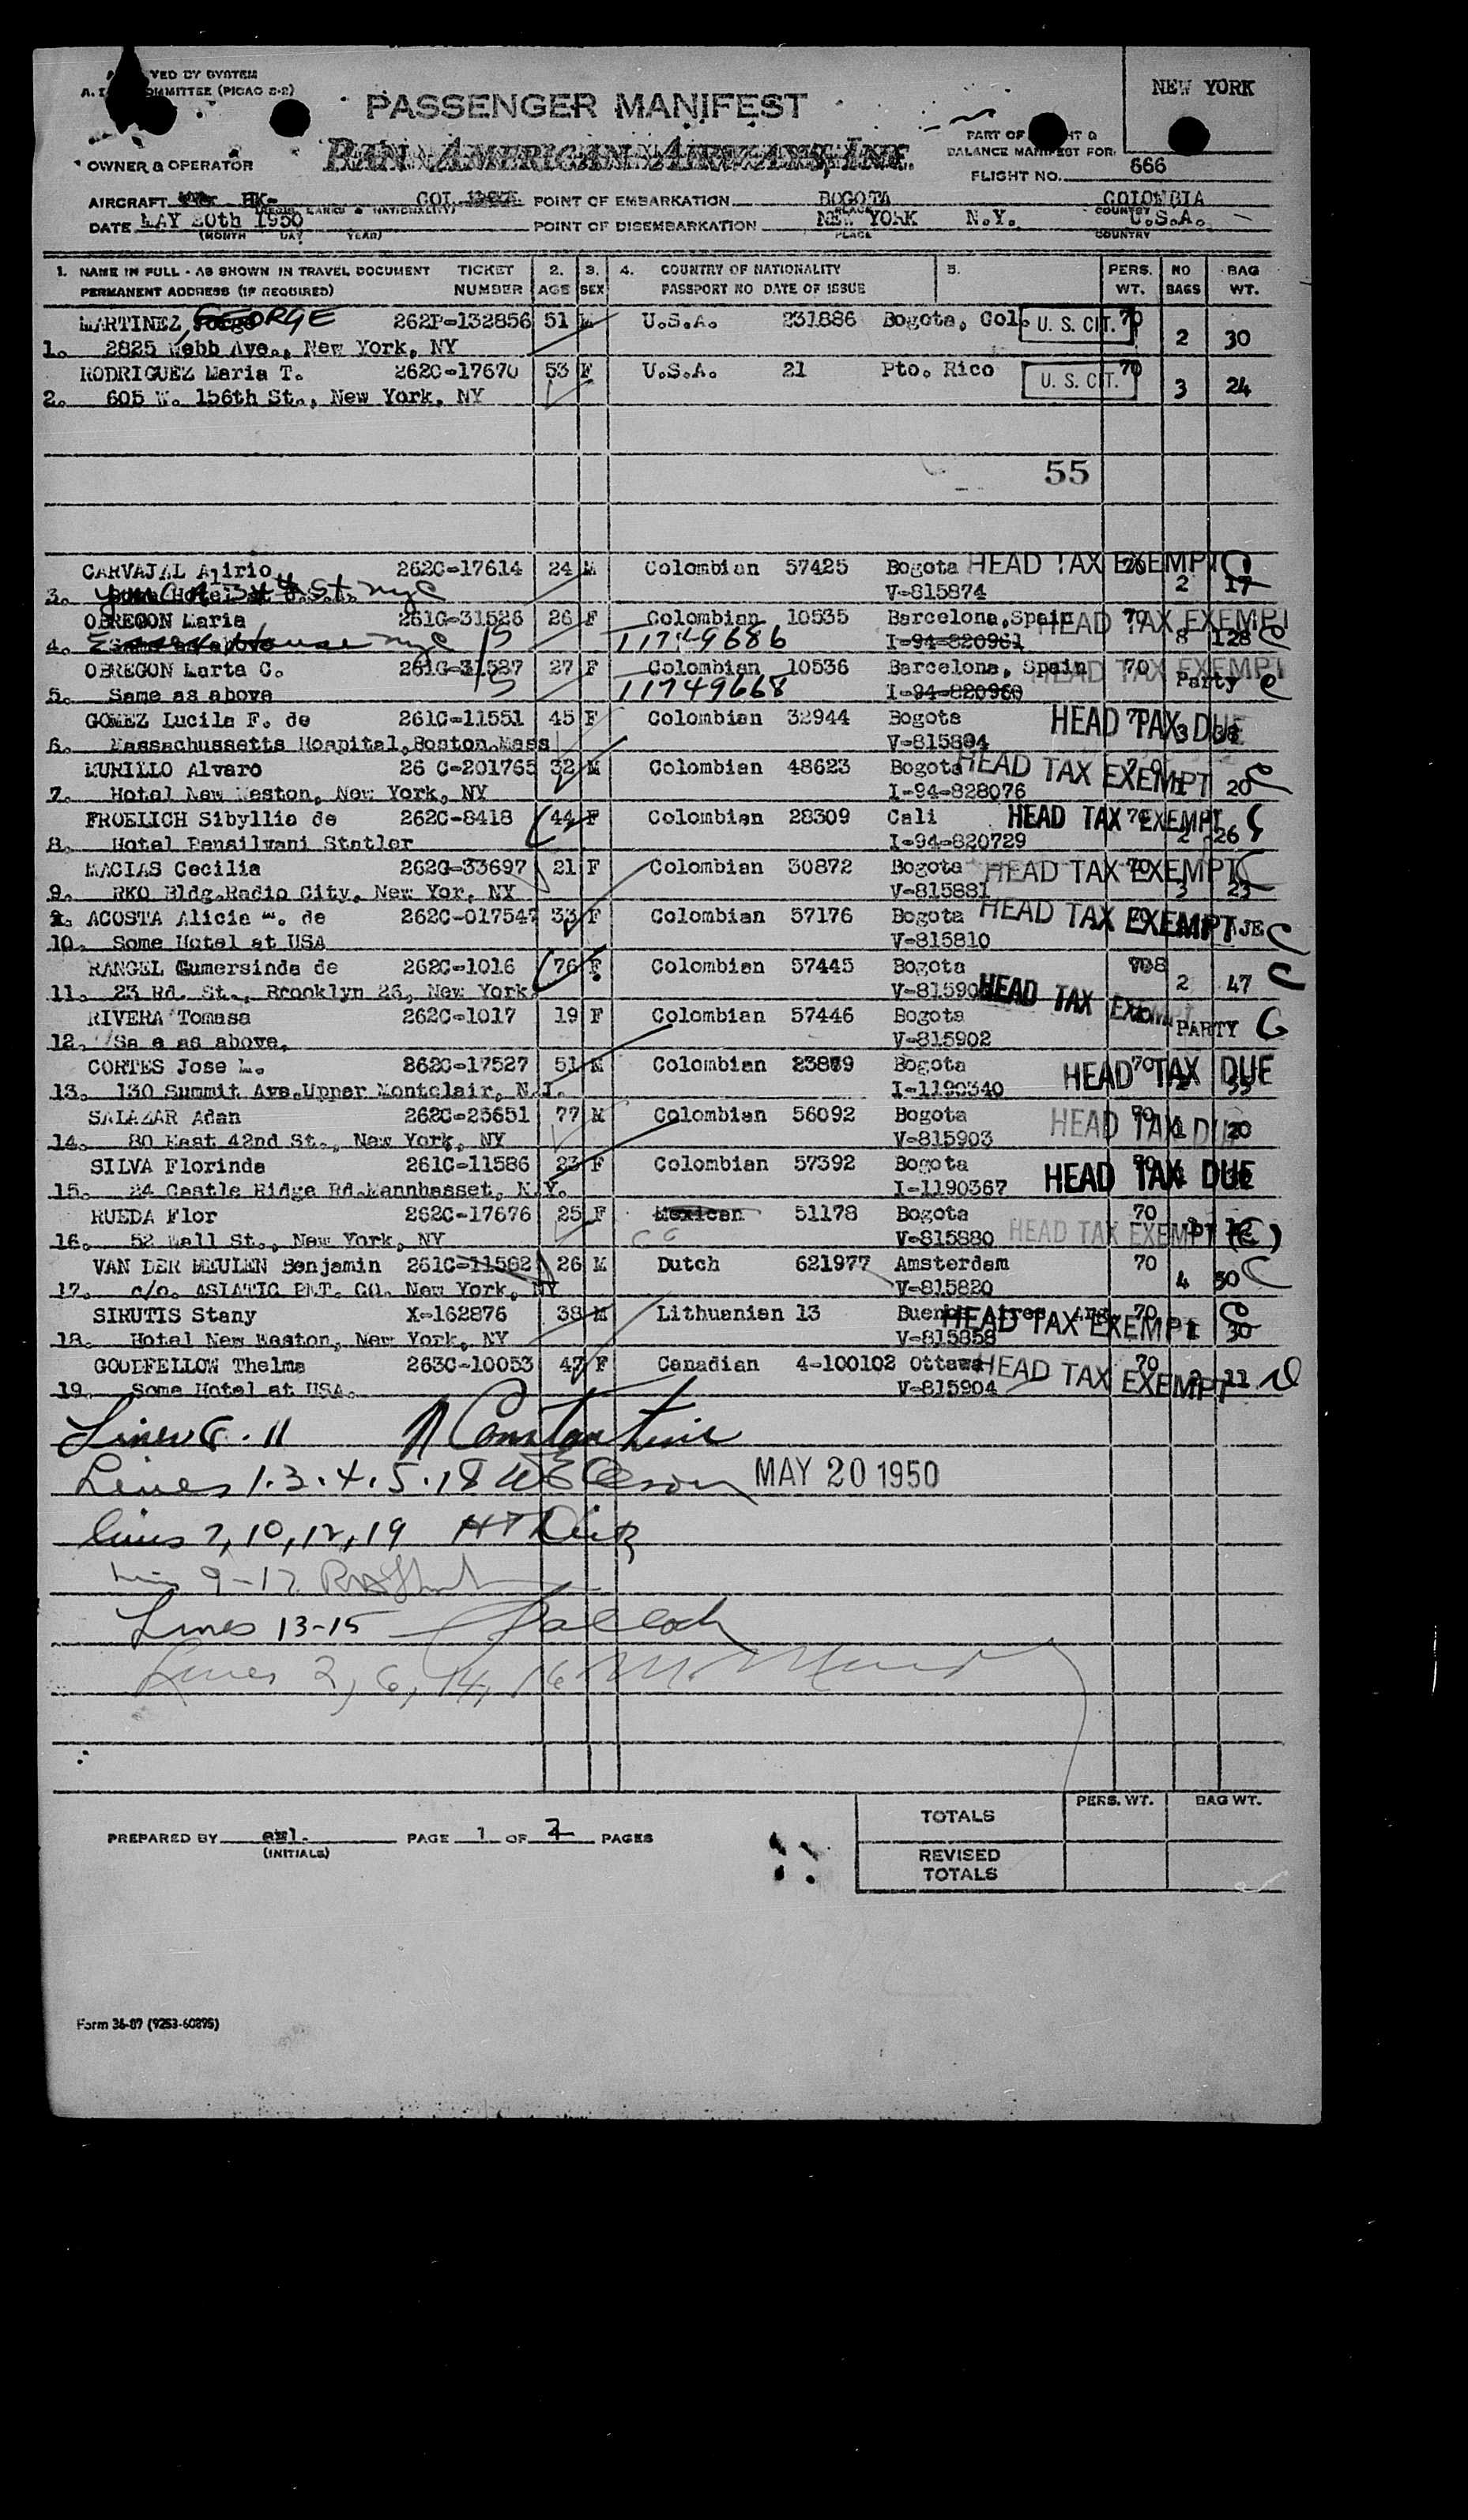 VED BY SYSTEM
COMMITTEE (PICAO 2-2)
NEW YORK
PASSENGER MANIFEST
PART OF
BALANCE MANIFEST FOR
OWNER & OPERATOR PAN AMERICAN AIRWAYS, INC.
FLIGHT NO. 666
AIRCRAFT HK- COL POINT OF EMBARKATION BOGOTA COLOMBIA
(MARKS & NATIONALITY) PLACE COUNTRY
DATE MAY 20th 1950 POINT OF DISEMBARKATION NEW YORK N.Y. U.S.A.
(MONTH DAY YEAR) PLACE COUNTRY
1. NAME IN FULL - AS SHOWN IN TRAVEL DOCUMENT TICKET 2. 3. 4. COUNTRY OF NATIONALITY 5. PERS. NO BAG
PERMANENT ADDRESS (IF REQUIRED) NUMBER AGE SEX PASSPORT NO DATE OF ISSUE WT. BAGS WT.
MARTINEZ, GEORGE 262P-132856 51 M U.S.A. 231886 Bogota, Col. U. S. CIT. 70
1. 2825 Webb Ave., New York, NY 2 30
RODRIGUEZ Maria T. 262C-17670 53 F U.S.A. 21 Pto. Rico U. S. CIT. 70
2. 605 W. 156th St., New York, NY 3 24
55
CARVAJAL Alirio 262C-17614 24 M Colombian 57425 Bogota HEAD TAX EXEMPT
3. St. nyc V-815874 2 17
OBREGON Maria 261G-31526 26 F Colombian 10535 Barcelona, Spain 70 HEAD TAX EXEMPT
4. Essex House nyc 11749686 I-94-820961 8 128 C
OBREGON Marta C. 261G-31527 27 F Colombian 10536 Barcelona, Spain 70 HEAD TAX EXEMPT
5. Same as above 11749668 I-94-820960 Party C
GOMEZ Lucila F. de 261C-11551 45 F Colombian 32944 Bogota HEAD TAX DUE
6. Massachussetts Hospital, Boston, Mass V-815894 3
MURILLO Alvaro 26 C-201765 32 M Colombian 48623 Bogota HEAD TAX EXEMPT
7. Hotel New Weston, New York, NY I-94-828076 20 C
FROELICH Sibyllie de 262C-8418 44 F Colombian 28309 Cali HEAD TAX EXEMPT 70
8. Hotel Pensilvani Statler I-94-820729 2 26
MACIAS Cecilia 262G-33697 21 F Colombian 30872 Bogota HEAD TAX EXEMPT 70
9. RKO Bldg.Radio City, New Yor, NY V-815881 3 23
ACOSTA Alicia M. de 262C-017547 33 F Colombian 57176 Bogota HEAD TAX EXEMPT
10. Some Hotel at USA V-815810 C
RANGEL Gumersinda de 262C-1016 76 F Colombian 57445 Bogota
11. 23 Rd. St., Brooklyn 26, New York. 2 47 C
RIVERA Tomasa 262C-1017 19 F Colombian 57446 Bogota HEAD TAX EXEMPT
12. Sa e as above. V-815902 PARTY C
CORTES Jose M. 262C-17527 51 M Colombian 23879 Bogota HEAD TAX DUE 70
13. 130 Summit Ave.Upper Montclair, N.J. I-1190340
SALAZAR Adan 262C-25651 77 M Colombian 56092 Bogota HEAD TAX DUE
14. 80 East 42nd St., New York, NY V-815903 20
SILVA Florinda 261C-11586 23 F Colombian 57392 Bogota HEAD TAX DUE
15. 24 Castle Ridge Rd.Mannhasset, N.Y. I-1190367
RUEDA Flor 262C-17676 25 F Mexican 51178 Bogota 70
16. 52 Wall St., New York, NY V-815880 HEAD TAX EXEMPT (C)
VAN DER MEULEN Benjamin 261C-11582 26 M Dutch 621977 Amsterdam 70
17. c/o. ASIATIC PET. CO. New York, NY V-815820 4 50 C
SIRUTIS Stany X-162876 38 M Lithuanian 13 Buenos Aires Arg. 70 HEAD TAX EXEMPT
18. Hotel New Weston, New York, NY V-815858 30
GOODFELLOW Thelma 263C-10053 47 F Canadian 4-100102 Ottawa 70 HEAD TAX EXEMPT
19. Some Hotel at USA. V-815904 11
Lines 8 - 11 N Constantine
Lines 1.3.4.5.18 MAY 20 1950
lines 7, 10, 12, 19
9-17
Lines 13-15
Lines 2, 6, 14, 16
PERS. WT. BAG WT.
TOTALS
PREPARED BY PAGE 1 OF 2 PAGES
(INITIALS)
REVISED
TOTALS
Form 36-87 (9253-60895)